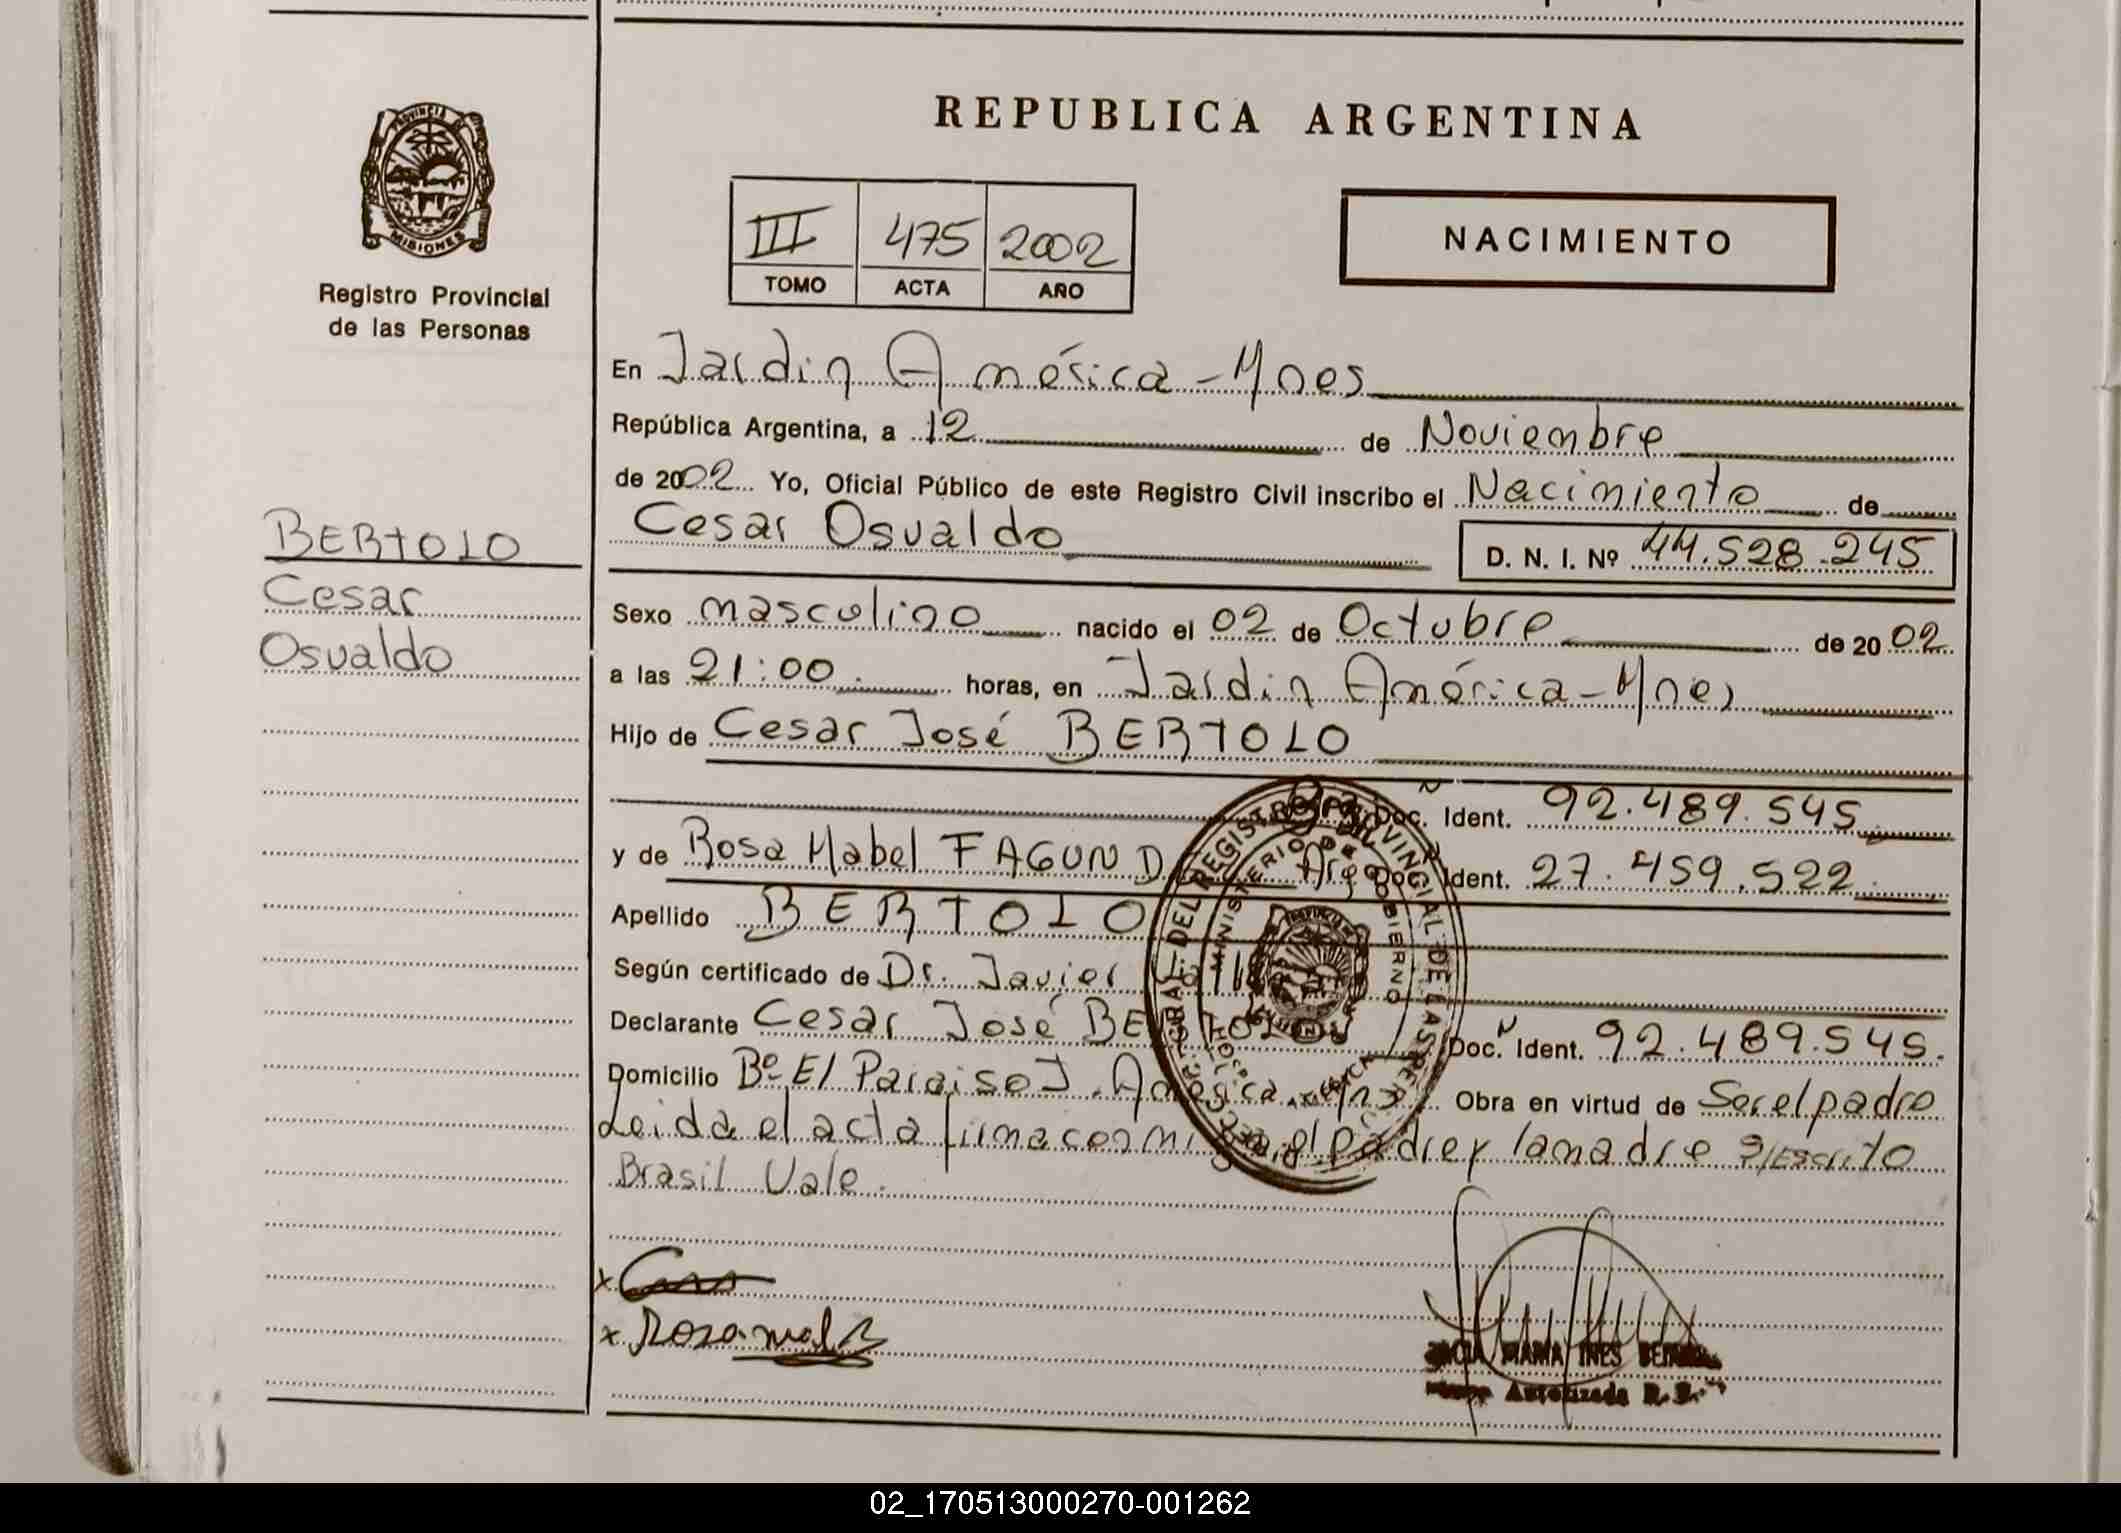 REPUBLICA ARGENTINA
PROVINCIA DE
MISIONES
Registro Provincial
de las Personas
III 475 2002
TOMO ACTA AÑO
NACIMIENTO
En Jardin América - Mnes
República Argentina, a 12 de Noviembre
de 2002 Yo, Oficial Público de este Registro Civil inscribo el Nacimiento de
Cesar Osvaldo D. N. I. Nº 44.528.245
BERTOLO
Cesar
Osvaldo
Sexo masculino nacido el 02 de Octubre de 2002
a las 21:00 horas, en Jardin América - Mnes
Hijo de Cesar José BERTOLO
Doc. Ident. 92.489.545
y de Rosa Mabel FAGUND Arg Doc. Ident. 27.459.522
Apellido BERTOLO
Según certificado de Dr. Javier
Declarante Cesar José BERTOLO Doc. Ident. 92.489.545.
Domicilio Bº El Paraiso J. América Mnes Obra en virtud de Ser el padre
Leida el acta firma con mi el padre y la madre S/Escrito
Brasil Vale.
MINISTERIO DE GOBIERNO
x
x Rosa
MARIA INES
Autorizada R. P.
02_170513000270-001262